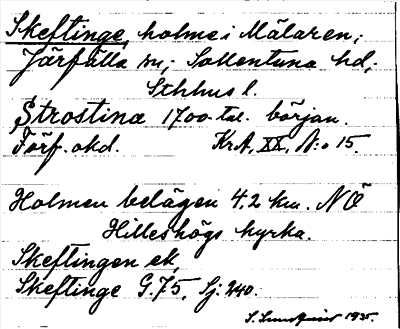 Skeftinge, holme i Mälaren;
Järfälla sn; Sollentuna hd;
Sthlms l.
Strostina 1700-tal. början.
Förf. okd. Kr.A. XX, N:o 15.
Holmen belägen 4,2 km. NÖ
Hilleshögs kyrka.
Skeftingen ek,
Skeftinge G. 75, Sj. 240.
S. 1935.